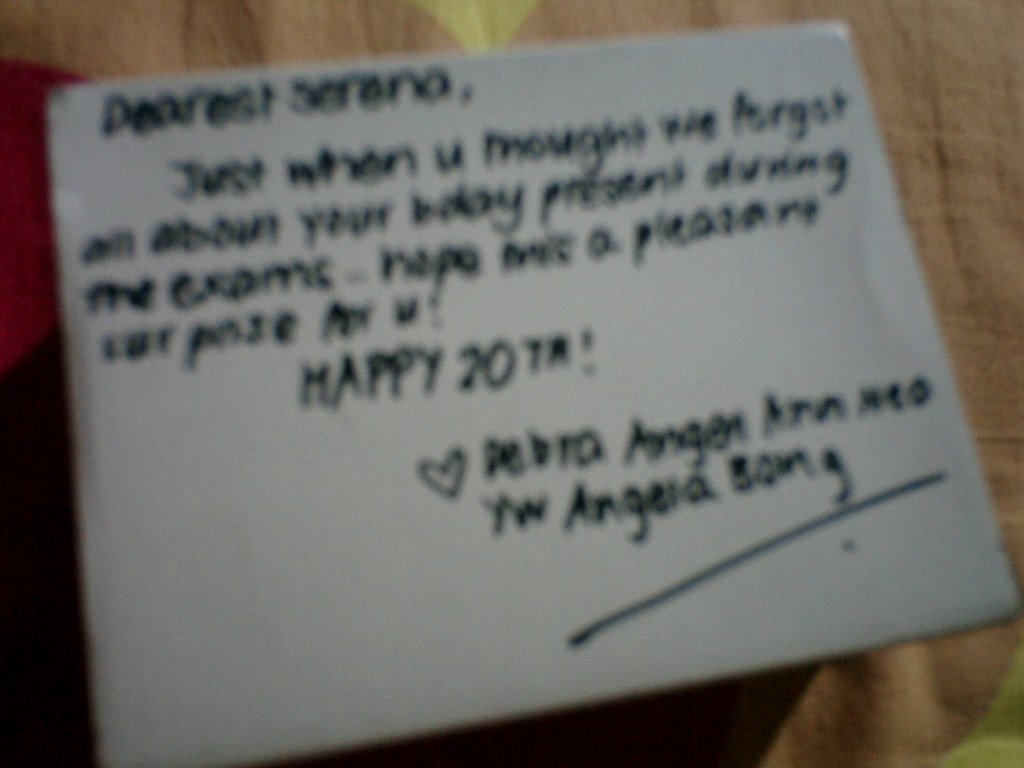 Dearest Serena,
Just when u thought we forgot
all about your bday present during
the exams.. hope this a pleasant
surprise for u!
HAPPY 20TH!
♡ Debra Angen Ann Neo
YW Angela Bong